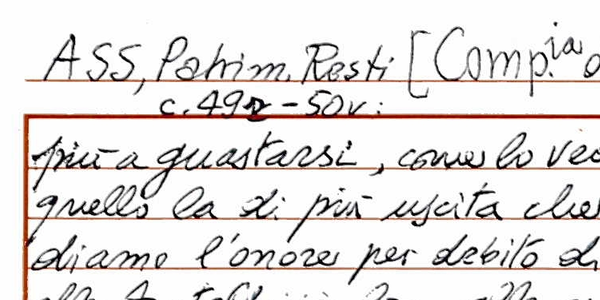 ASS, Patrim. Resti [Comp.ia
c. 49r - 50v:
più a guastarsi, come lo
quello la di più uscita che
diamo l'onore per debito di